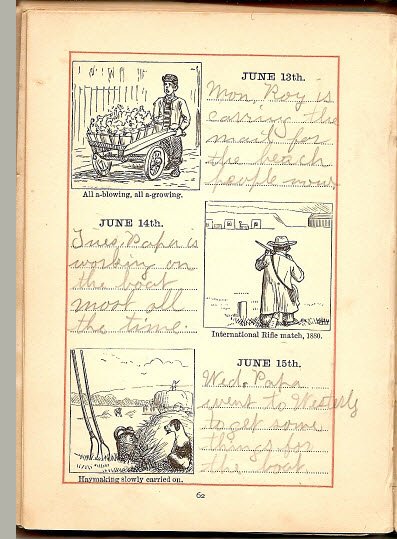 JUNE 13th.
Mon, Roy is
carring the
mail for
the beach
people now
All a-blowing, all a-growing.
JUNE 14th.
Tues, Paper is
working on
the boat
most all
the time.
International Rifle match, 1880.
JUNE 15th.
Wed. Papa
went to Westerly
to get some
things for
the boat
Haymaking slowly carried on.
62